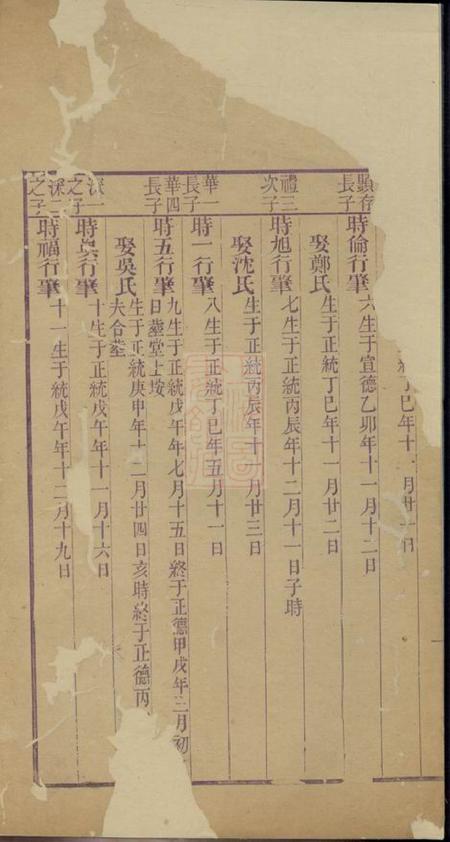 統丁巳年十一月廿一日
顯存長子
時倫行肇六生于宣德乙卯年十一月十二日
娶鄭氏生于正統丁巳年十一月廿二日
禮三次子
時旭行肇七生于正統丙辰年十二月十一日子時
娶沈氏生于正統丙辰年十一月廿三日
華一長子
時一行肇八生于正統丁巳年五月十一日
華四長子
時五行肇九生于正統戊午年七月十五日終于正德甲戌年三月初
日塟堂上垵
娶吳氏生于正統庚申年十二月廿四日亥時終于正德丙
夫合塟
深一之子
時 行肇十生于正統戊午年十一月十六日
深二之子
時福行肇十一生于統戊午年十二月十九日